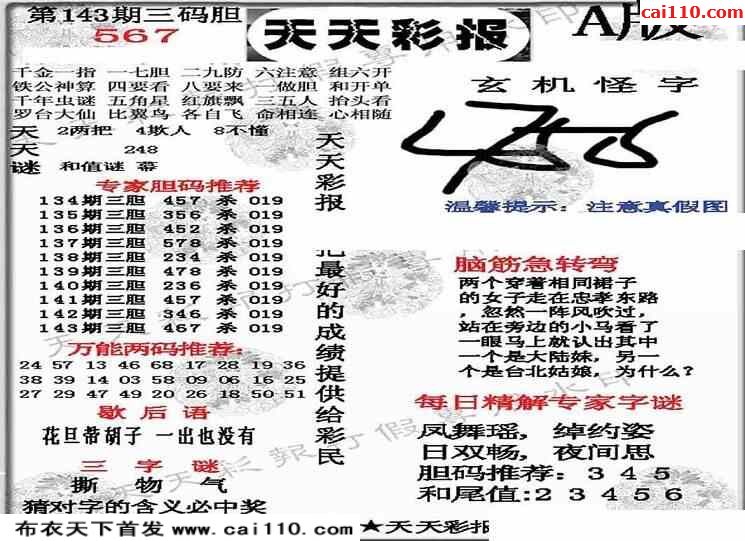 第143期三码胆
567
天天彩报
A版
cai110.com
千金一指 一七胆 二九防 六注意 组六开
铁公神算 四要看 八要来 一做胆 和开单
千年虫谜 五角星 红旗飘 三五人 抬头看
罗台大仙 比翼鸟 各自飞 命相连 心相随
天 2两把 4欺人 8不懂
天 248
谜 和值谜 幕
专家胆码推荐
134期三胆 457 杀 019
135期三胆 356 杀 019
136期三胆 452 杀 019
137期三胆 578 杀 019
138期三胆 234 杀 019
139期三胆 478 杀 019
140期三胆 236 杀 019
141期三胆 457 杀 019
142期三胆 346 杀 019
143期三胆 467 杀 019
万能两码推荐:
24 57 13 46 68 17 28 19 36
38 39 14 03 58 09 06 16 25
27 29 47 49 20 26 18 50 51
歇后语
花旦带胡子 一出也没有
三字谜
撕 物 气
猜对字的含义必中奖
天天彩报
把最好的成绩提供给彩民
玄机怪字
温馨提示: 注意真假图
脑筋急转弯
两个穿着相同裙子
的女子走在忠孝东路
，忽然一阵风吹过，
站在旁边的小马看了
一眼马上就认出其中
一个是大陆妹，另一
个是台北姑娘，为什么?
每日精解专家字谜
凤舞瑶，绰约姿
日双畅，夜间思
胆码推荐: 3 4 5
和尾值:2 3 4 5 6
布衣天下首发 www.cai110.com
★天天彩报